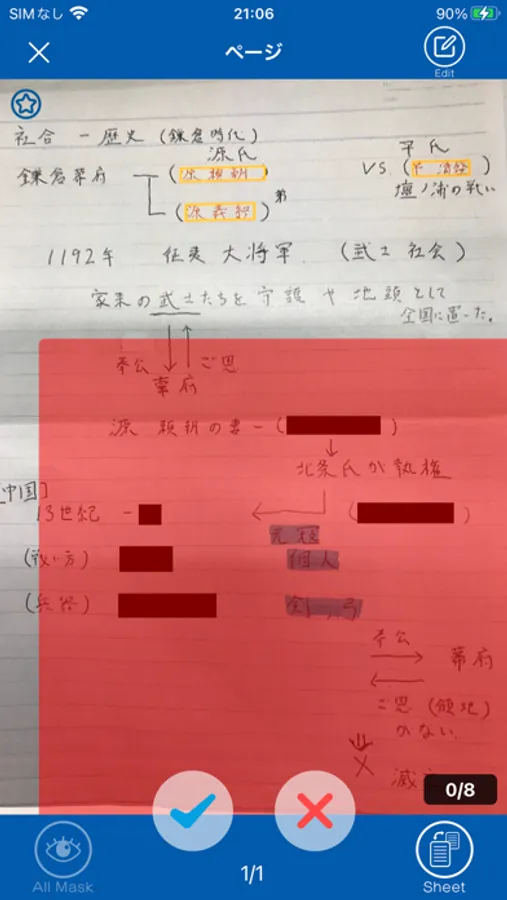 SIMなし 21:06 90%
ページ
Edit
社会 - 歴史 (鎌倉時代)
源氏 平氏
鎌倉幕府 (源頼朝) VS. (平清盛)
(源義経) 弟 壇ノ浦の戦い
1192年 征夷大将軍 (武士社会)
家来の武士たちを守護や地頭として
全国に置いた。
奉公 ご恩
幕府
源頼朝の妻-( )
北条氏が執権
[中国]
13世紀 - ( )
元寇
(戦い方) 個人
(兵器) 剣、弓
奉公
幕府
ご恩(領地)
がない
滅
0/8
All Mask
1/1
Sheet